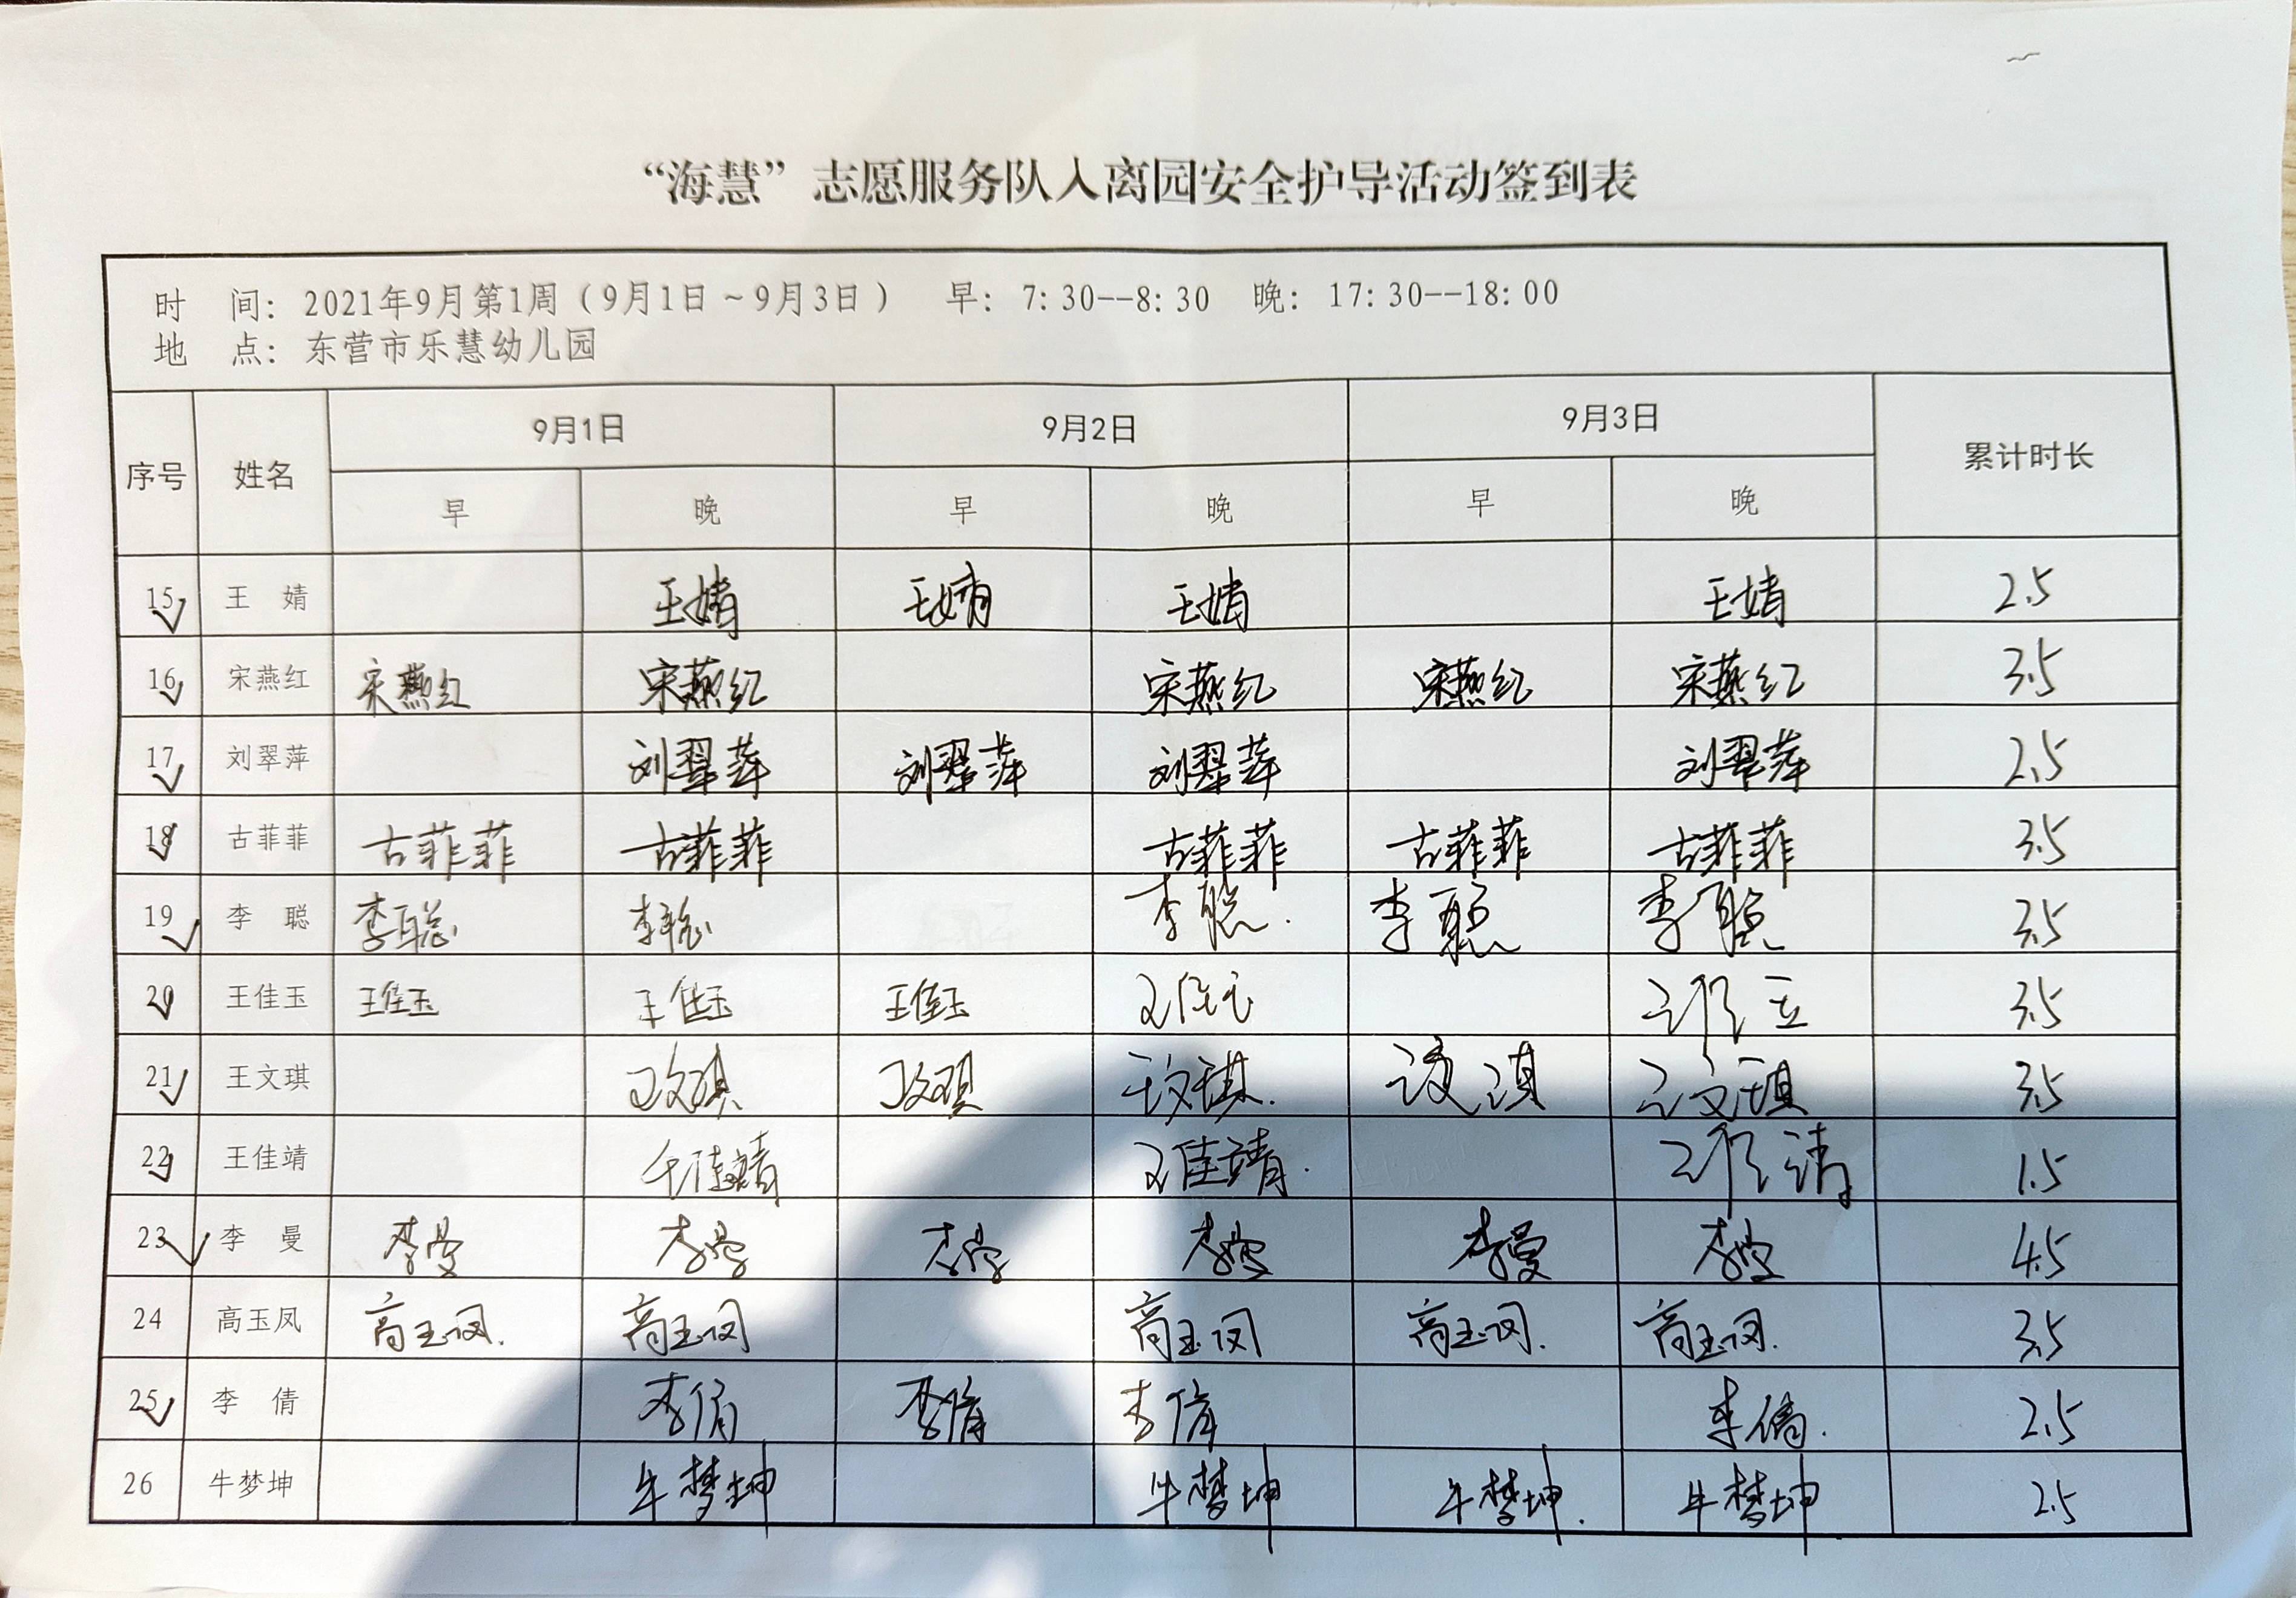 “海慧”志愿服务队入离园安全护导活动签到表
时 间: 2021年9月第1周（9月1日～9月3日） 早: 7:30--8:30 晚: 17:30--18:00
地 点: 东营市乐慧幼儿园
序号 姓名 9月1日 9月2日 9月3日 累计时长
早 晚 早 晚 早 晚
15 王 婧 王婧 王婧 王婧 王婧 2.5
16 宋燕红 宋燕红 宋燕红 宋燕红 宋燕红 宋燕红 3.5
17 刘翠萍 刘翠萍 刘翠萍 刘翠萍 刘翠萍 2.5
18 古菲菲 古菲菲 古菲菲 古菲菲 古菲菲 古菲菲 3.5
19 李 聪 李聪 李聪 李聪. 李聪 李聪 3.5
20 王佳玉 王佳玉 王佳玉 王佳玉 王佳玉 王佳玉 3.5
21 王文琪 王文琪 王文琪 王文琪. 王文琪 王文琪 3.5
22 王佳靖 王佳靖 王佳靖. 王佳靖 1.5
23 李 曼 李曼 李曼 李曼 李曼 李曼 李曼 4.5
24 高玉凤 高玉凤. 高玉凤 高玉凤 高玉凤. 高玉凤. 3.5
25 李 倩 李倩 李倩 李倩 李倩. 2.5
26 牛梦坤 牛梦坤 牛梦坤 牛梦坤. 牛梦坤 2.5